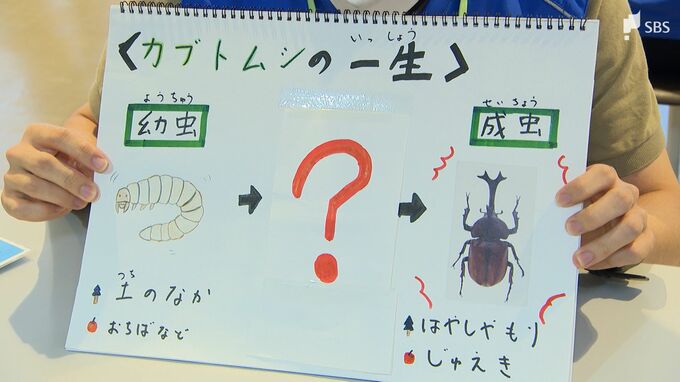 SBS
いっしょう
〈カブトムシの一生〉
ようちゅう
幼虫
?
つち
土のなか
おちばなど
せいちゅう
成虫
はやしやもり
じゅえき